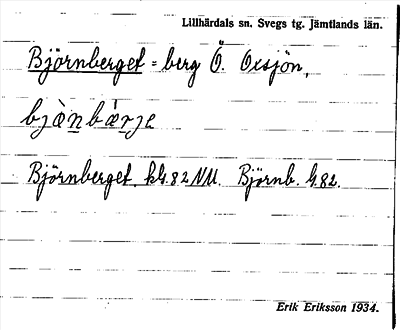 Lillhärdals sn. Svegs tg. Jämtlands län.
Björnberget = berg Ö. Oxsjön,
bjὰn bærje
Björnberget kG.82 NU. Björnb. G.82.
Erik Eriksson 1934.